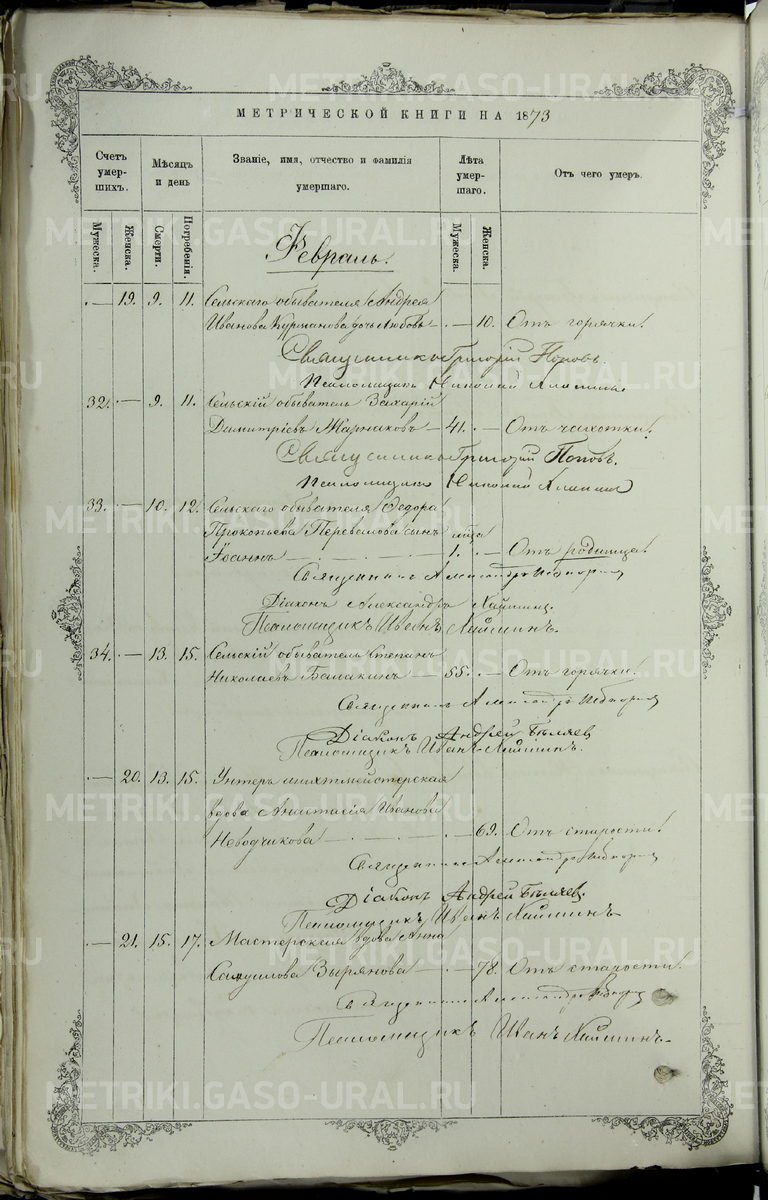 МЕТРИЧЕСКОЙ КНИГИ НА 1873
Счетъ умер-шихъ.
Мѣсяцъ и день
Званіе, имя, отчество и фамилія умершаго.
Лѣта умер-шаго.
Отъ чего умеръ.
Мужеска.
Женска.
Смерти.
Погребенія.
Мужеска.
Женска.
Февраль.
— 19. 9. 11. Сельскаго обывателя Андрея
Иванова Курманова дочь Любовь — 10. Отъ горячки.
Священникъ Григорій Поповъ.
Псаломщикъ
32. — 9. 11. Сельскій обыватель Захарій
Димитріевъ — 41. — Отъ чахотки.
Священникъ Григорій Поповъ.
Псаломщикъ
33. — 10. 12. Сельскаго обывателя Ѳедора
Прокопьева Перевалова сынъ
Іоаннъ — 1. — Отъ родимца.
Священникъ Александръ
Діаконъ Александръ
Псаломщикъ Иванъ Хаймитъ.
34. — 13. 15. Сельскій обыватель Степанъ
Николаевъ Балакинъ — 55. — Отъ горячки.
Священникъ Александръ
Діаконъ Андрей Бѣляев
Псаломщикъ Иванъ
— 20. 13. 15. Унтеръ шихтмейстерская
вдова Анастасія Иванова
Неводчикова — 69. Отъ старости.
Священникъ Александръ
Діаконъ Андрей Бѣляев.
Псаломщикъ Иванъ
— 21. 15. 17. Мастерская вдова Анна
Самуилова Зырянова — 78. Отъ старости.
Священникъ Александръ
Псаломщикъ Иванъ
METRIKI.GASO-URAL.RU